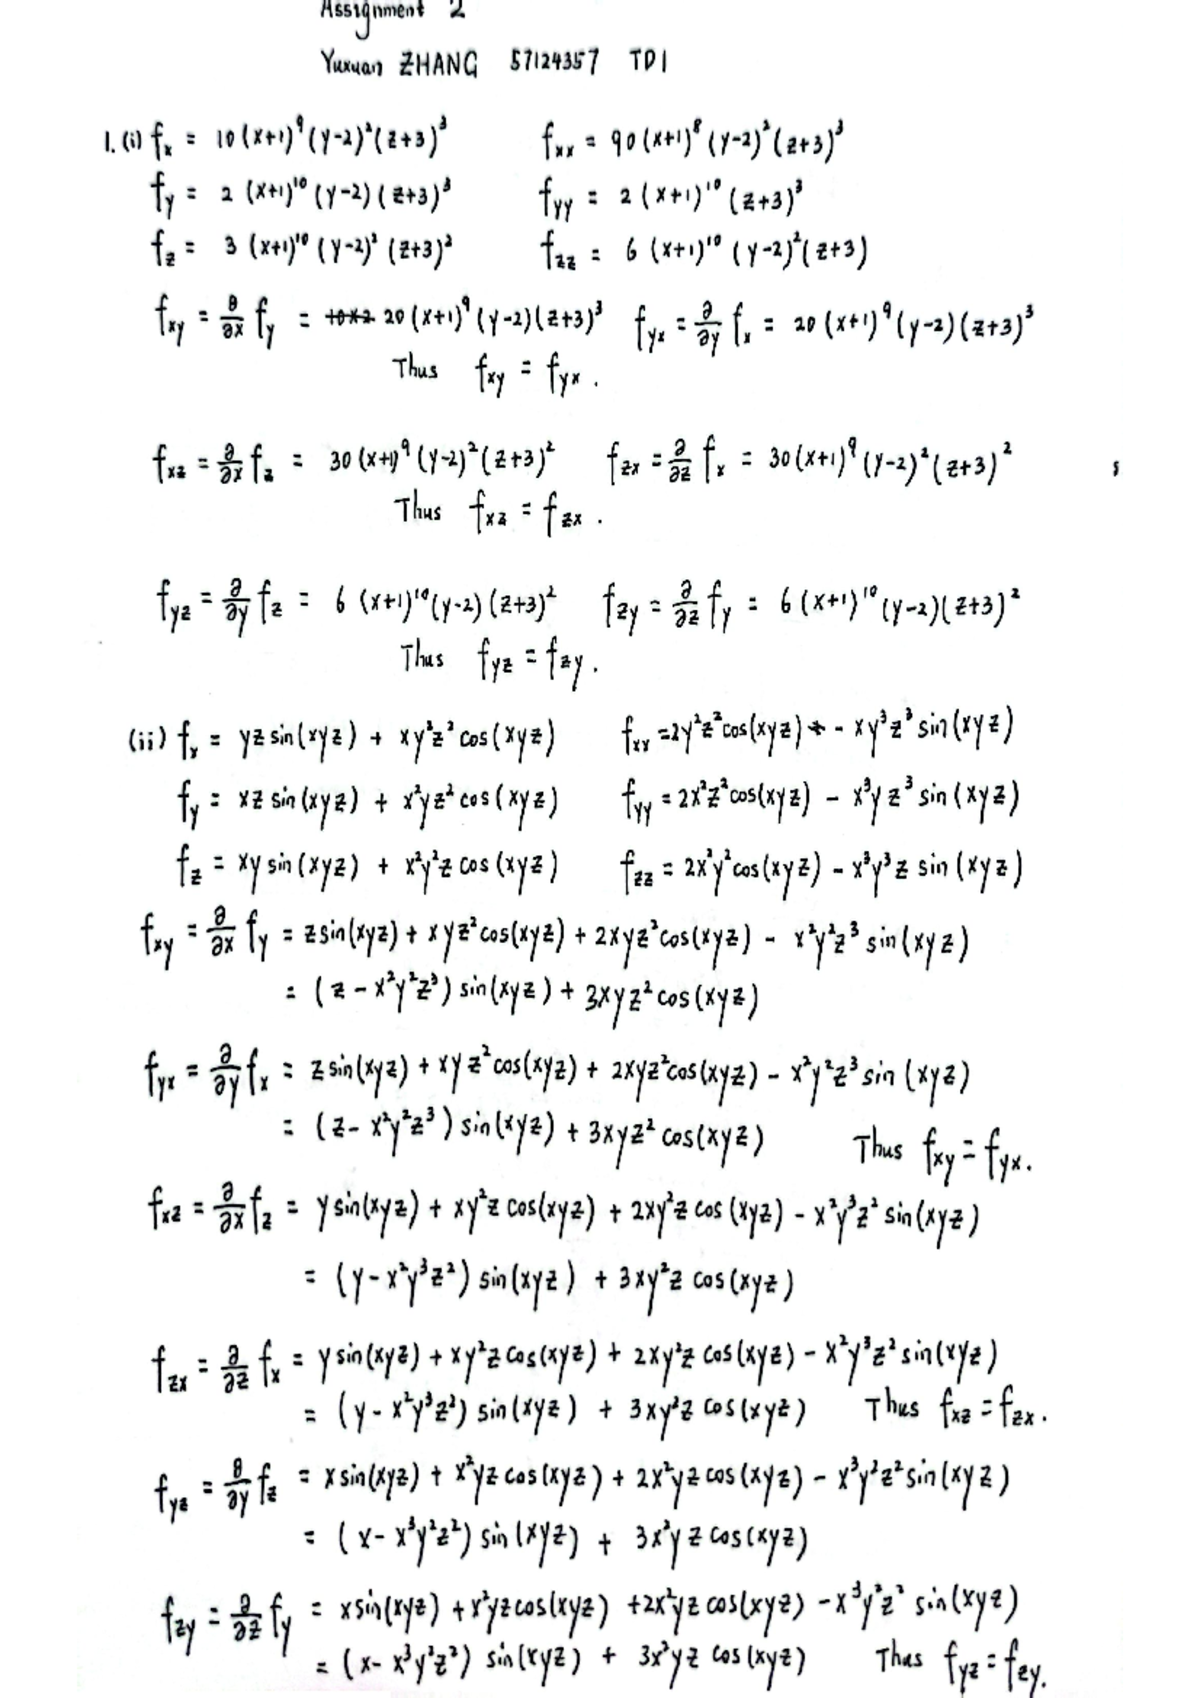 Assignment 2
Yuxuan ZHANG 57124357 TD1
1. (i) fx = 10(x+1)⁹(y-2)²(z+3)³ fxx = 90(x+1)⁸(y-2)²(z+3)³
fy = 2(x+1)¹⁰(y-2)(z+3)³ fyy = 2(x+1)¹⁰(z+3)³
fz = 3(x+1)¹⁰(y-2)²(z+3)² fzz = 6(x+1)¹⁰(y-2)²(z+3)
fxy = ∂/∂x fy = 10×2 20(x+1)⁹(y-2)(z+3)³ fyx = ∂/∂y fx = 20(x+1)⁹(y-2)(z+3)³
Thus fxy = fyx.
fxz = ∂/∂x fz = 30(x+1)⁹(y-2)²(z+3)² fzx = ∂/∂z fx = 30(x+1)⁹(y-2)²(z+3)²
Thus fxz = fzx.
fyz = ∂/∂y fz = 6(x+1)¹⁰(y-2)(z+3)² fzy = ∂/∂z fy = 6(x+1)¹⁰(y-2)(z+3)²
Thus fyz = fzy.
(ii) fx = yz sin(xyz) + xy²z² cos(xyz) fxx = 2y²z² cos(xyz) + - xy³z³ sin(xyz)
fy = xz sin(xyz) + x²yz² cos(xyz) fyy = 2x²z² cos(xyz) - x³yz³ sin(xyz)
fz = xy sin(xyz) + x²y²z cos(xyz) fzz = 2x²y² cos(xyz) - x³y³z sin(xyz)
fxy = ∂/∂x fy = z sin(xyz) + xyz² cos(xyz) + 2xyz² cos(xyz) - x²y²z³ sin(xyz)
= (z - x²y²z³) sin(xyz) + 3xyz² cos(xyz)
fyx = ∂/∂y fx = z sin(xyz) + xyz² cos(xyz) + 2xyz² cos(xyz) - x²y²z³ sin(xyz)
= (z - x²y²z³) sin(xyz) + 3xyz² cos(xyz) Thus fxy = fyx.
fxz = ∂/∂x fz = y sin(xyz) + xy²z cos(xyz) + 2xy²z cos(xyz) - x²y³z² sin(xyz)
= (y - x²y³z²) sin(xyz) + 3xy²z cos(xyz)
fzx = ∂/∂z fx = y sin(xyz) + xy²z cos(xyz) + 2xy²z cos(xyz) - x²y³z² sin(xyz)
= (y - x²y³z²) sin(xyz) + 3xy²z cos(xyz) Thus fxz = fzx.
fyz = ∂/∂y fz = x sin(xyz) + x²yz cos(xyz) + 2x²yz cos(xyz) - x³y²z² sin(xyz)
= (x - x³y²z²) sin(xyz) + 3x²yz cos(xyz)
fzy = ∂/∂z fy = x sin(xyz) + x²yz cos(xyz) + 2x²yz cos(xyz) - x³y²z² sin(xyz)
= (x - x³y²z²) sin(xyz) + 3x²yz cos(xyz) Thus fyz = fzy.